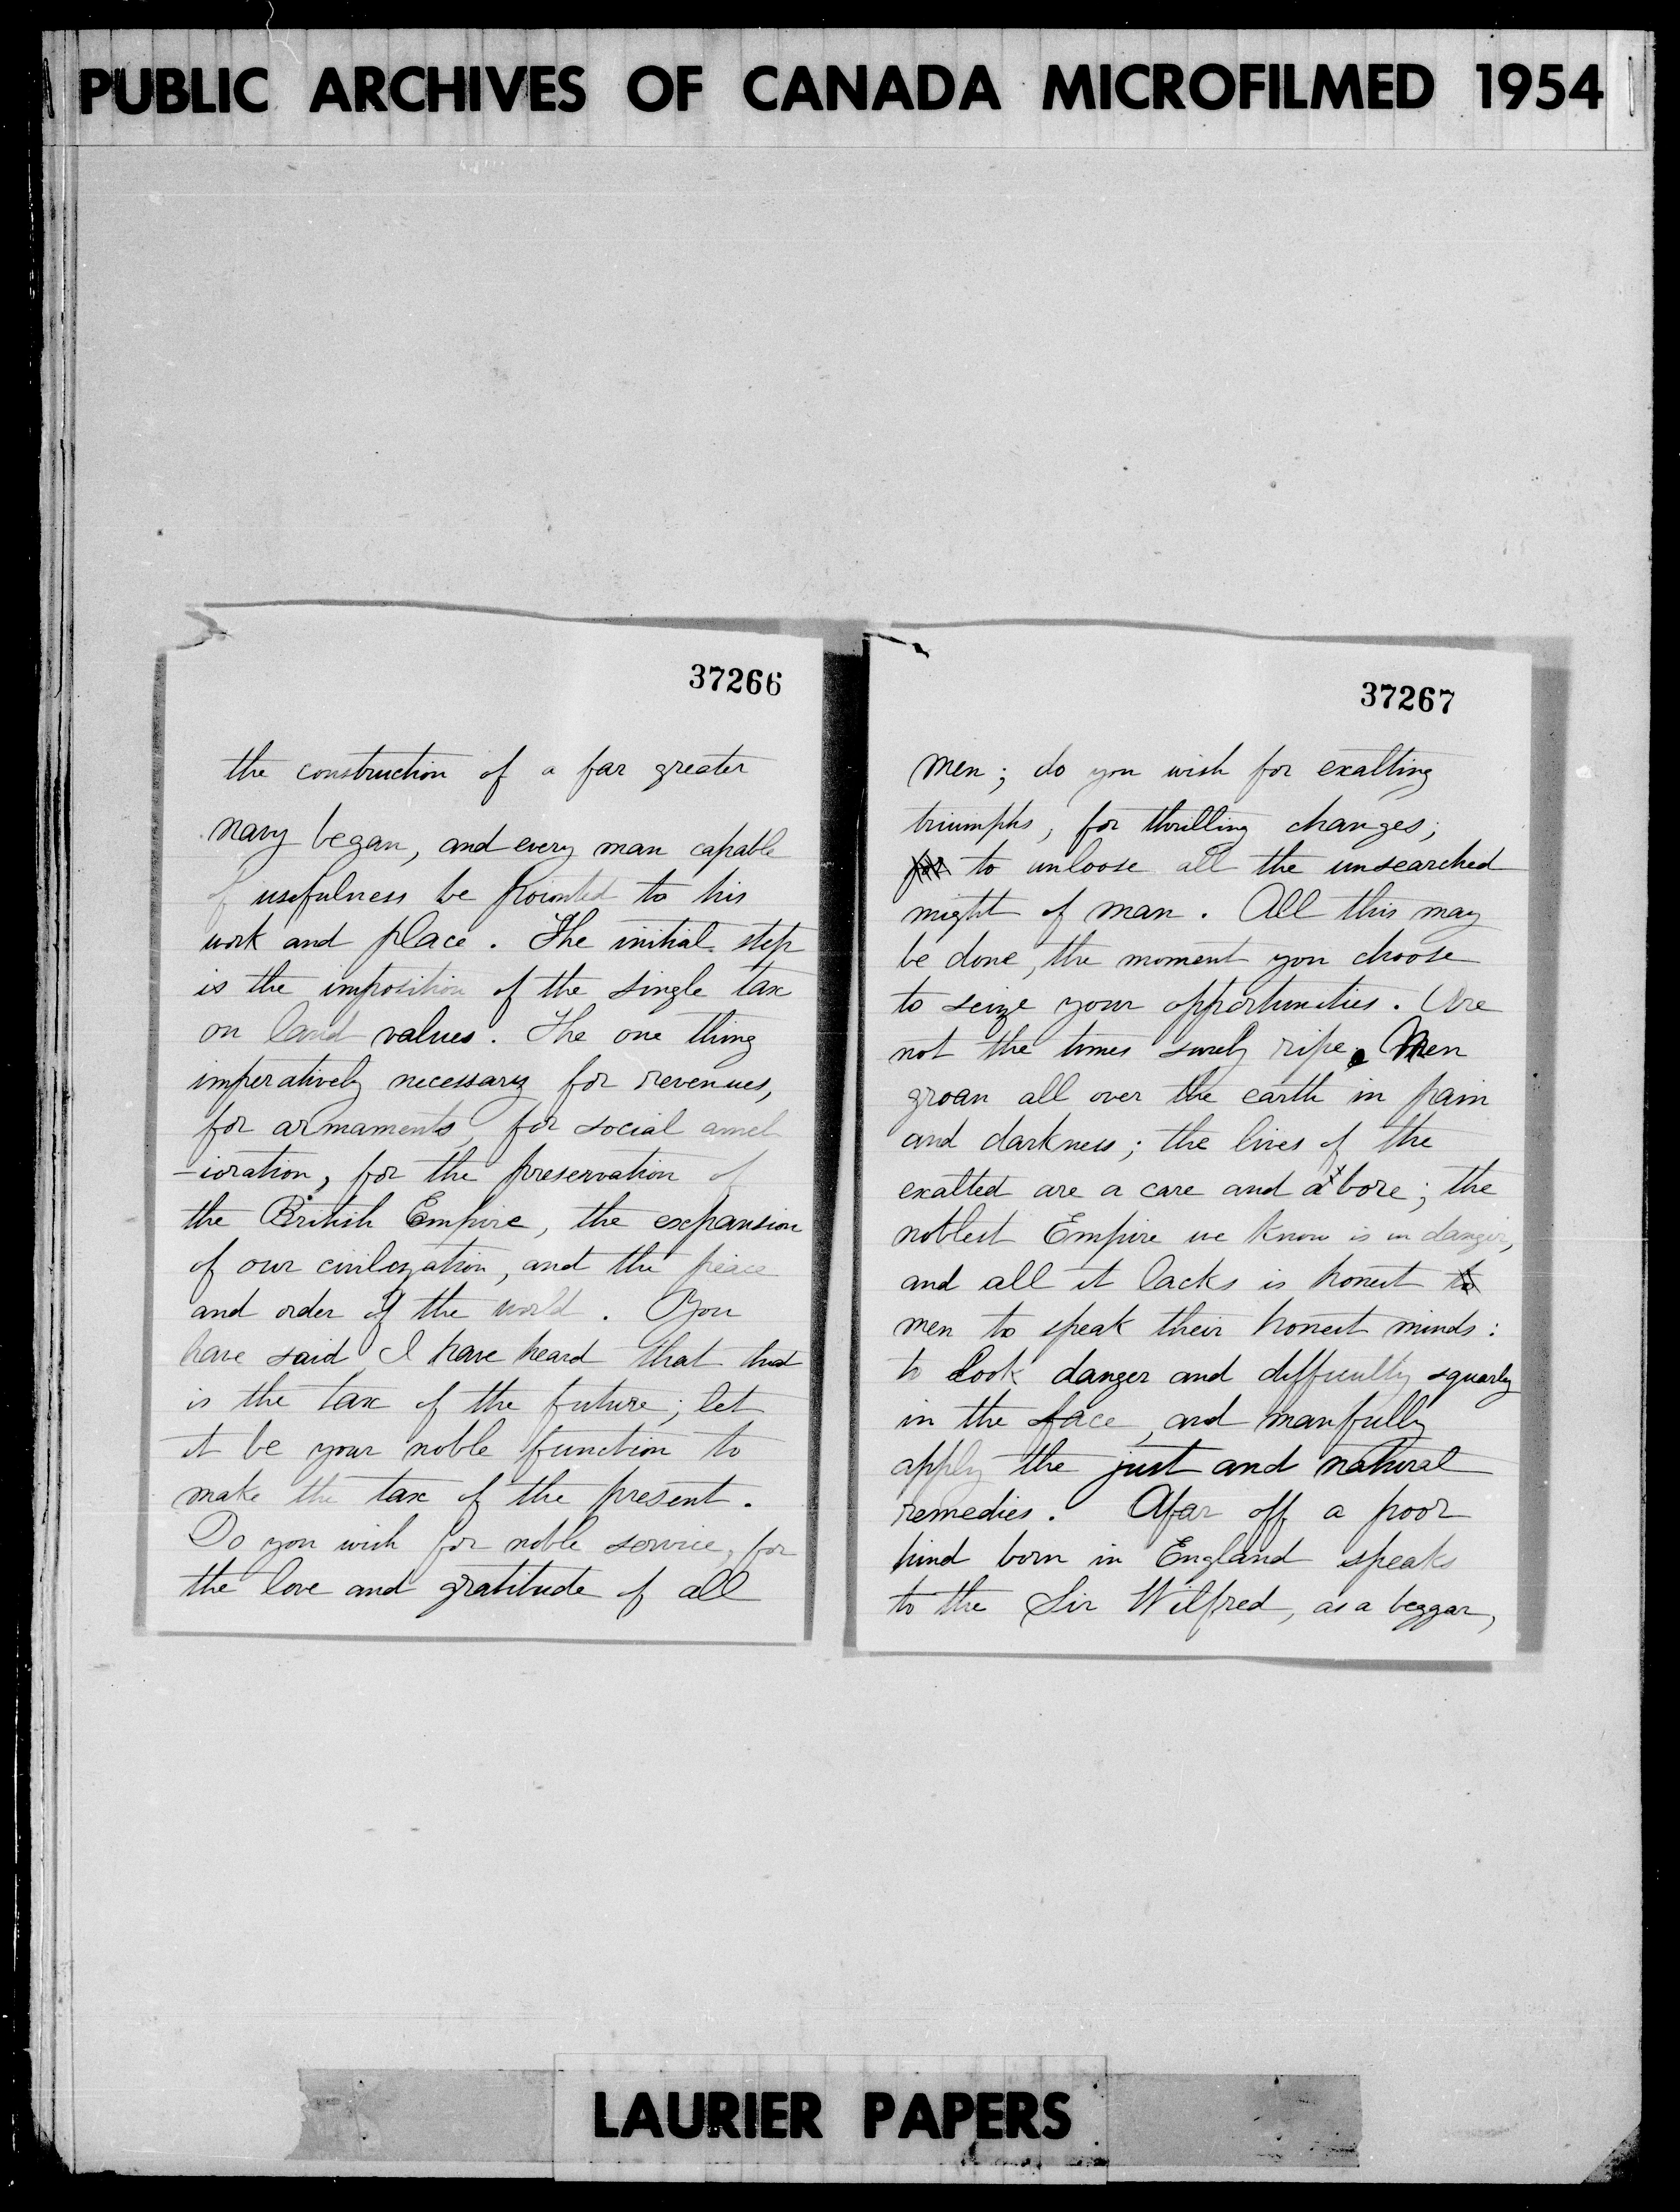 PUBLIC ARCHIVES OF CANADA MICROFILMED 1954
37266
the construction of a far greater
navy began, and every man capable
of usefulness be pointed to his
work and place. The initial step
is the imposition of the single tax
on land values. The one thing
imperatively necessary for revenues,
for armaments, for social amel
-ioration, for the preservation of
the British Empire, the expansion
of our civilization, and the peace
and order of the world. You
have said I have heard that that
is the tax of the future; let
it be your noble function to
make the tax of the present.
Do you wish for noble service, for
the love and gratitude of all
37267
men; do you wish for exalting
triumphs, for thrilling changes;
for to unloose all the unsearched
might of man. All this may
be done, the moment you choose
to seize your opportunities. Are
not the times surely ripe. Men
groan all over the earth in pain
and darkness; the lives of the
exalted are a care and a bore; the
noblest Empire we know is in danger,
and all it lacks is honest to
men to speak their honest minds:
to look danger and difficulty squarly
in the face, and manfully
apply the just and natural
remedies. Afar off a poor
hind born in England speaks
to the Sir Wilfred, as a beggar,
LAURIER PAPERS